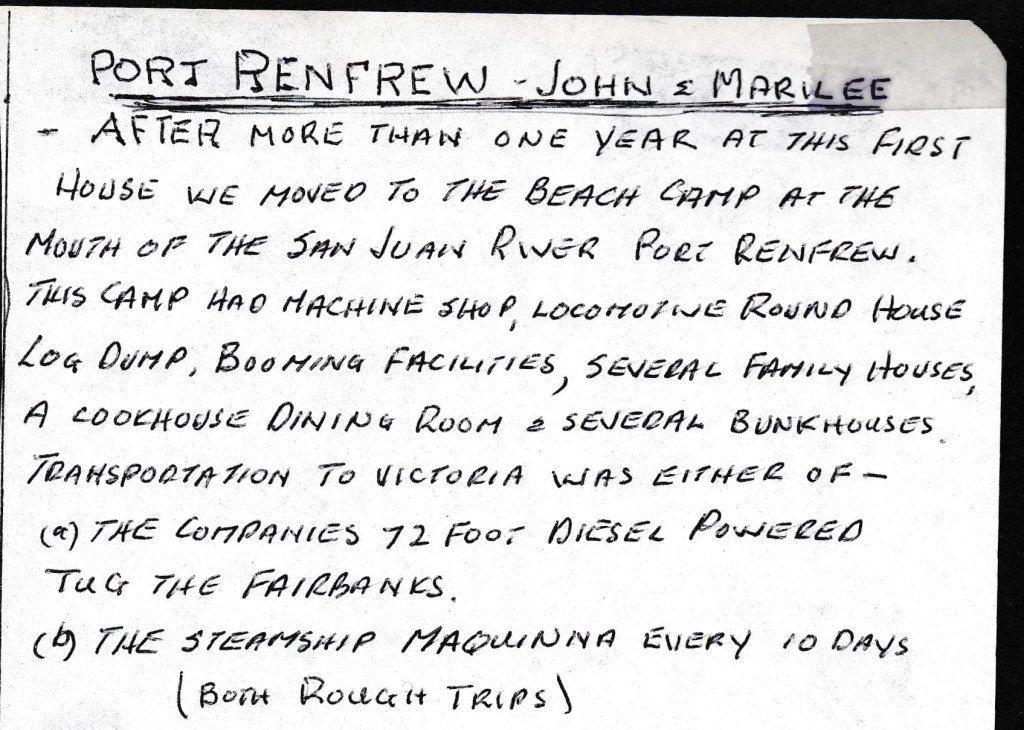 PORT RENFREW - JOHN & MARILEE
- AFTER MORE THAN ONE YEAR AT THIS FIRST
HOUSE WE MOVED TO THE BEACH CAMP AT THE
MOUTH OF THE SAN JUAN RIVER PORT RENFREW.
THIS CAMP HAD MACHINE SHOP, LOCOMOTIVE ROUND HOUSE
LOG DUMP, BOOMING FACILITIES, SEVERAL FAMILY HOUSES,
A COOKHOUSE DINING ROOM & SEVERAL BUNKHOUSES.
TRANSPORTATION TO VICTORIA WAS EITHER OF -
(a) THE COMPANIES 72 FOOT DIESEL POWERED
TUG THE FAIRBANKS.
(b) THE STEAMSHIP MAQUINNA EVERY 10 DAYS
(BOTH ROUGH TRIPS)